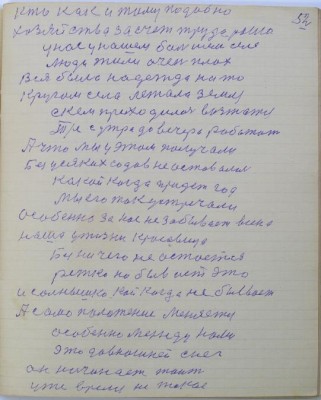 52
кто как и тому подобно
хозяйства за счет трудодьно
у нас у нашем большом селе
люди жили очен плох
Вся было надежда на то
Кругом села лежала земля
с кем приходилос
с утра до вечера работат
А что мы у этом получали
Без усяких годов не оставалис
какой когда придет год
мы его так устречали
Особенно за нас не забывает
наша у жизни красавица
Бу ничего не остается
редко но бывает это
и солнышко кой когда не бывает
А само положение меняетя
особенно между нами
это давношней снег
он начинает таит
уже время не такое